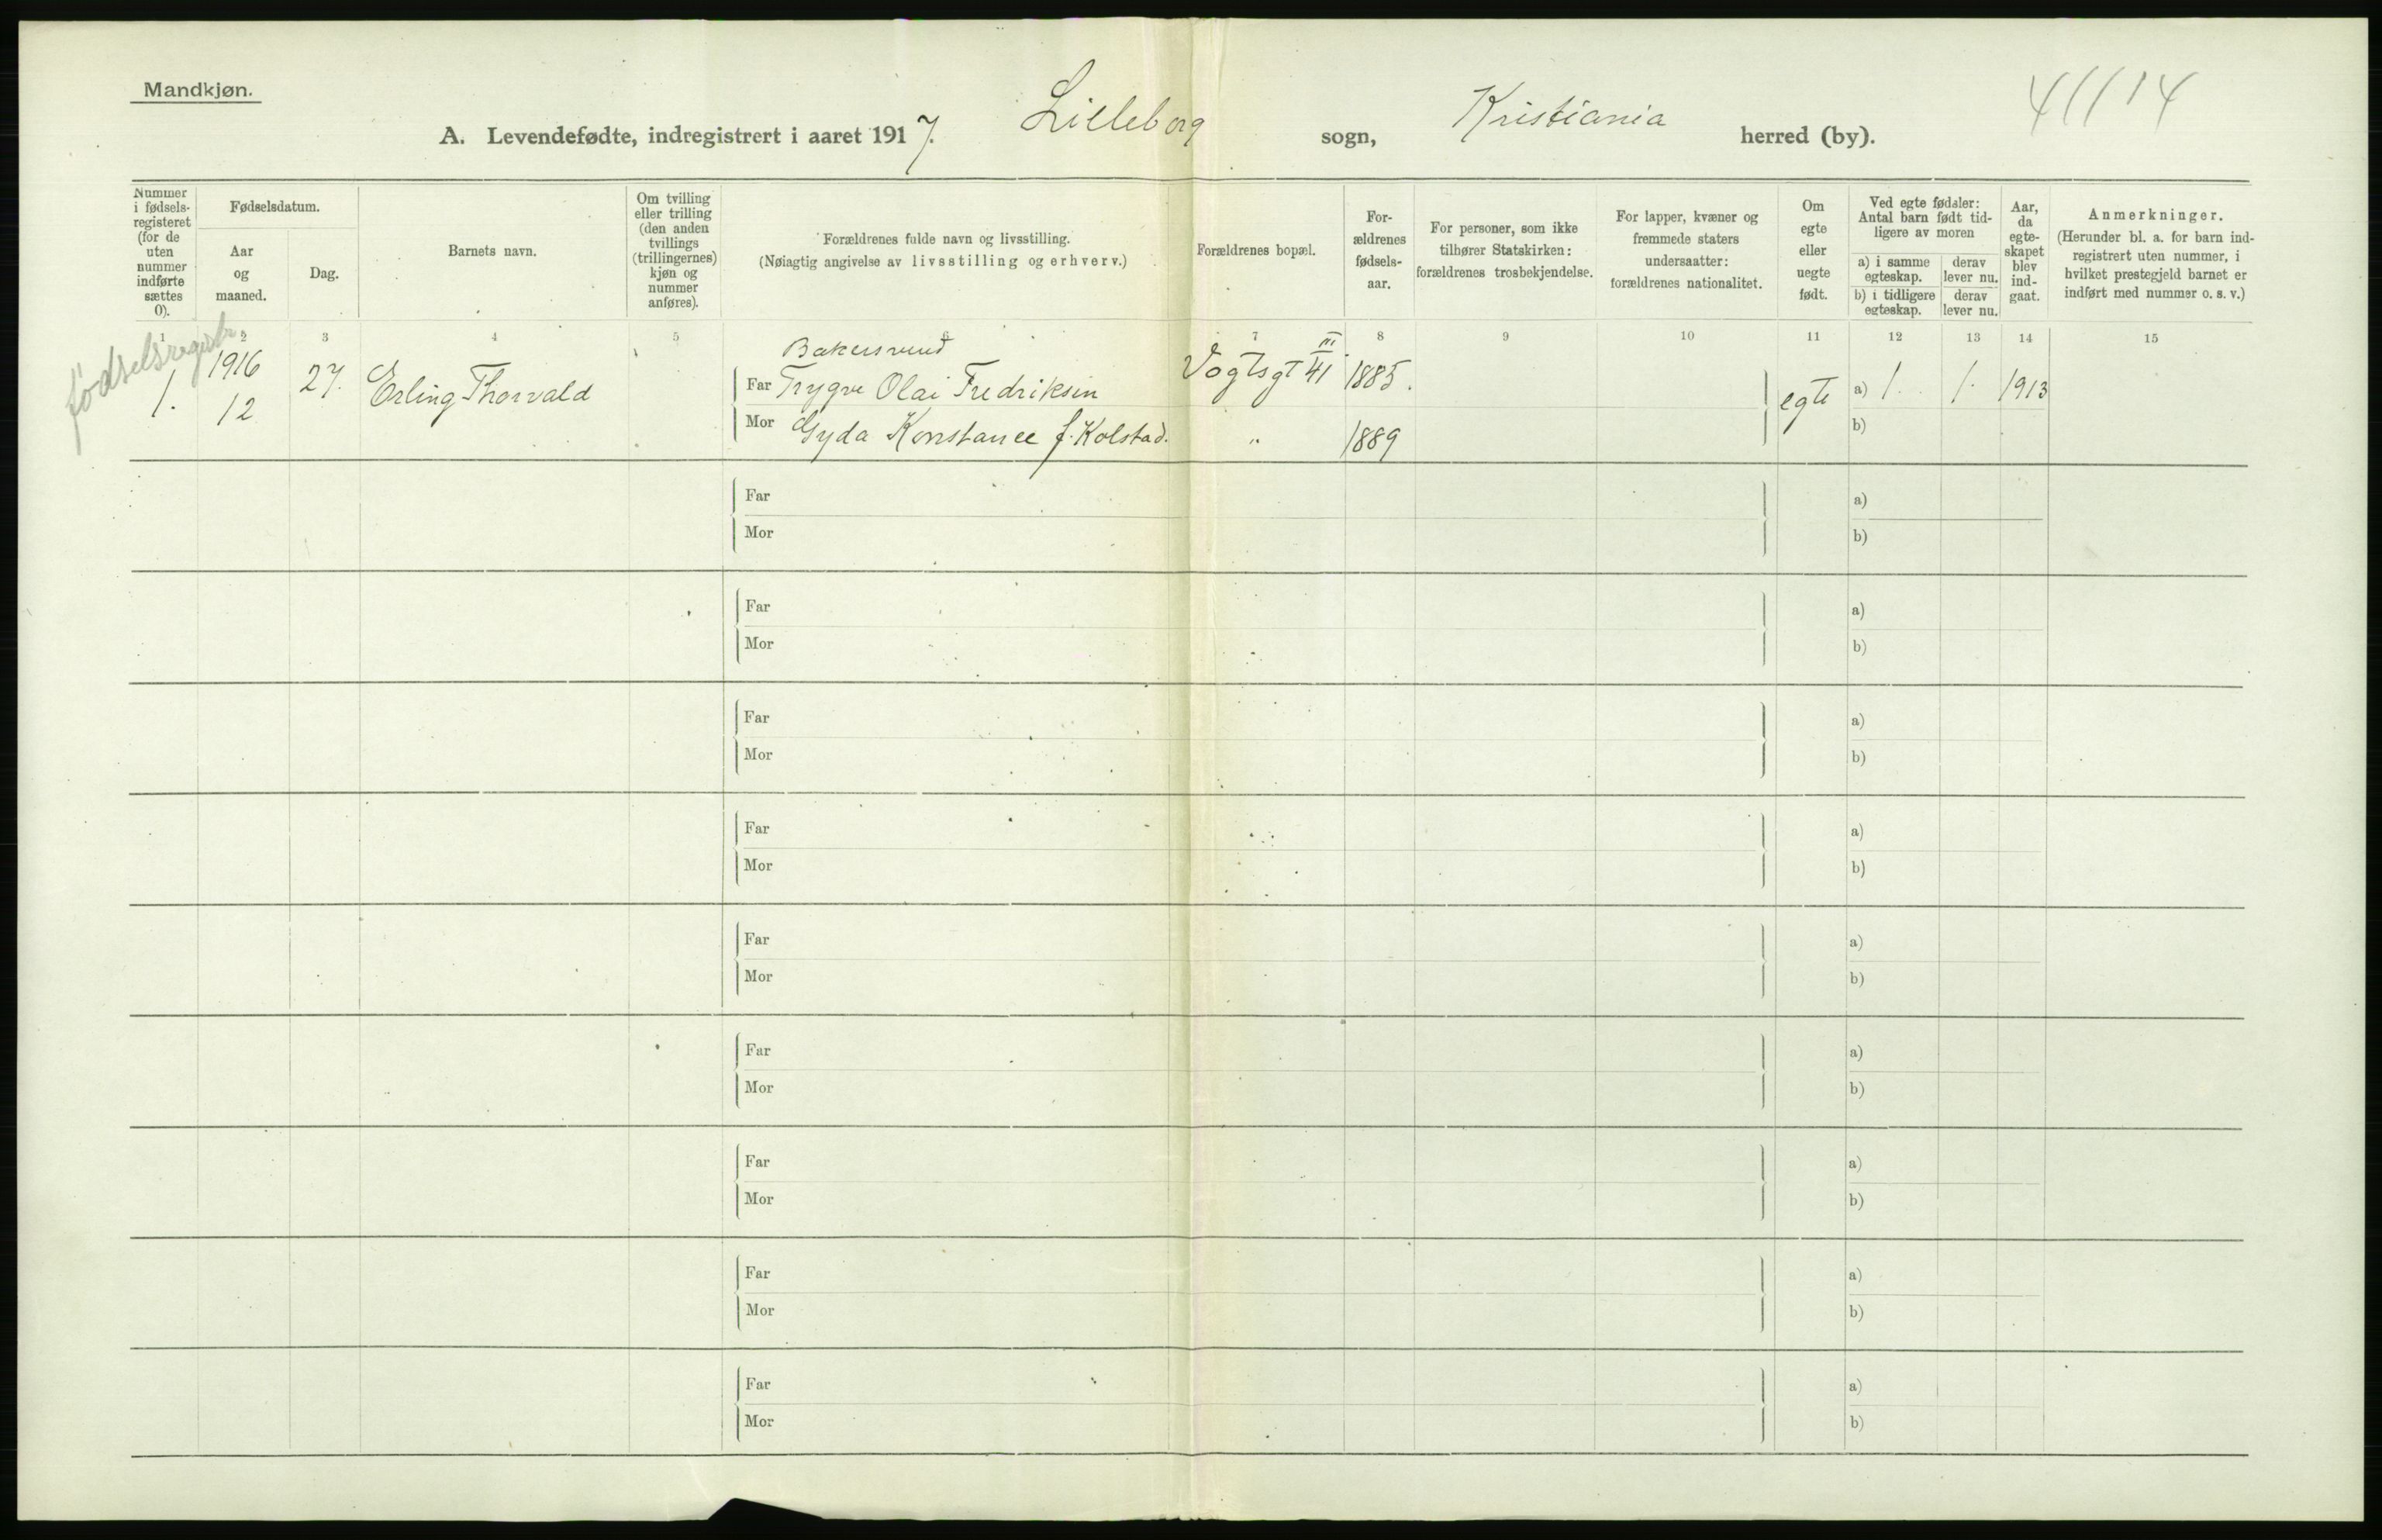 Mandkjøn.
A. Levendefødte, indregistrert i aaret 1917. Lilleborg sogn, Kristiania herred (by).
Nummer i fødsels-registeret (for de uten nummer indførte sættes 0).
Fødselsdatum.
Aar og maaned.
Dag.
Barnets navn.
Om tvilling eller trilling (den anden tvillings (trillingernes) kjøn og nummer anføres).
Forældrenes fulde navn og livsstilling.
(Nøiagtig angivelse av livsstilling og erhverv.)
Forældrenes bopæl.
For-ældrenes fødsels-aar.
For personer, som ikke tilhører Statskirken: forældrenes trosbekjendelse.
For lapper, kvæner og fremmede staters undersaatter: forældrenes nationalitet.
Om egte eller uegte født.
Ved egte fødsler: Antal barn født tid-ligere av moren
a) i samme egteskap.
derav lever nu.
b) i tidligere egteskap.
derav lever nu.
Aar, da egte-skapet blev ind-gaat.
Anmerkninger.
(Herunder bl. a. for barn ind-registrert uten nummer, i hvilket prestegjeld barnet er indført med nummer o. s. v.)
1 2 3 4 5 6 7 8 9 10 11 12 13 14 15
fødselsregistr
Bakersvend
1. 1916 12 27. Erling Thorvald Far Trygve Olai Fredriksen Vogtsgt 41 III 1885. egte a) 1. 1. 1913
Mor Gyda Konstance f. Kolstad. " 1889 b)
Far a)
Mor b)
Far a)
Mor b)
Far a)
Mor b)
Far a)
Mor b)
Far a)
Mor b)
Far a)
Mor b)
Far a)
Mor b)
Far a)
Mor b)
Far a)
Mor b)